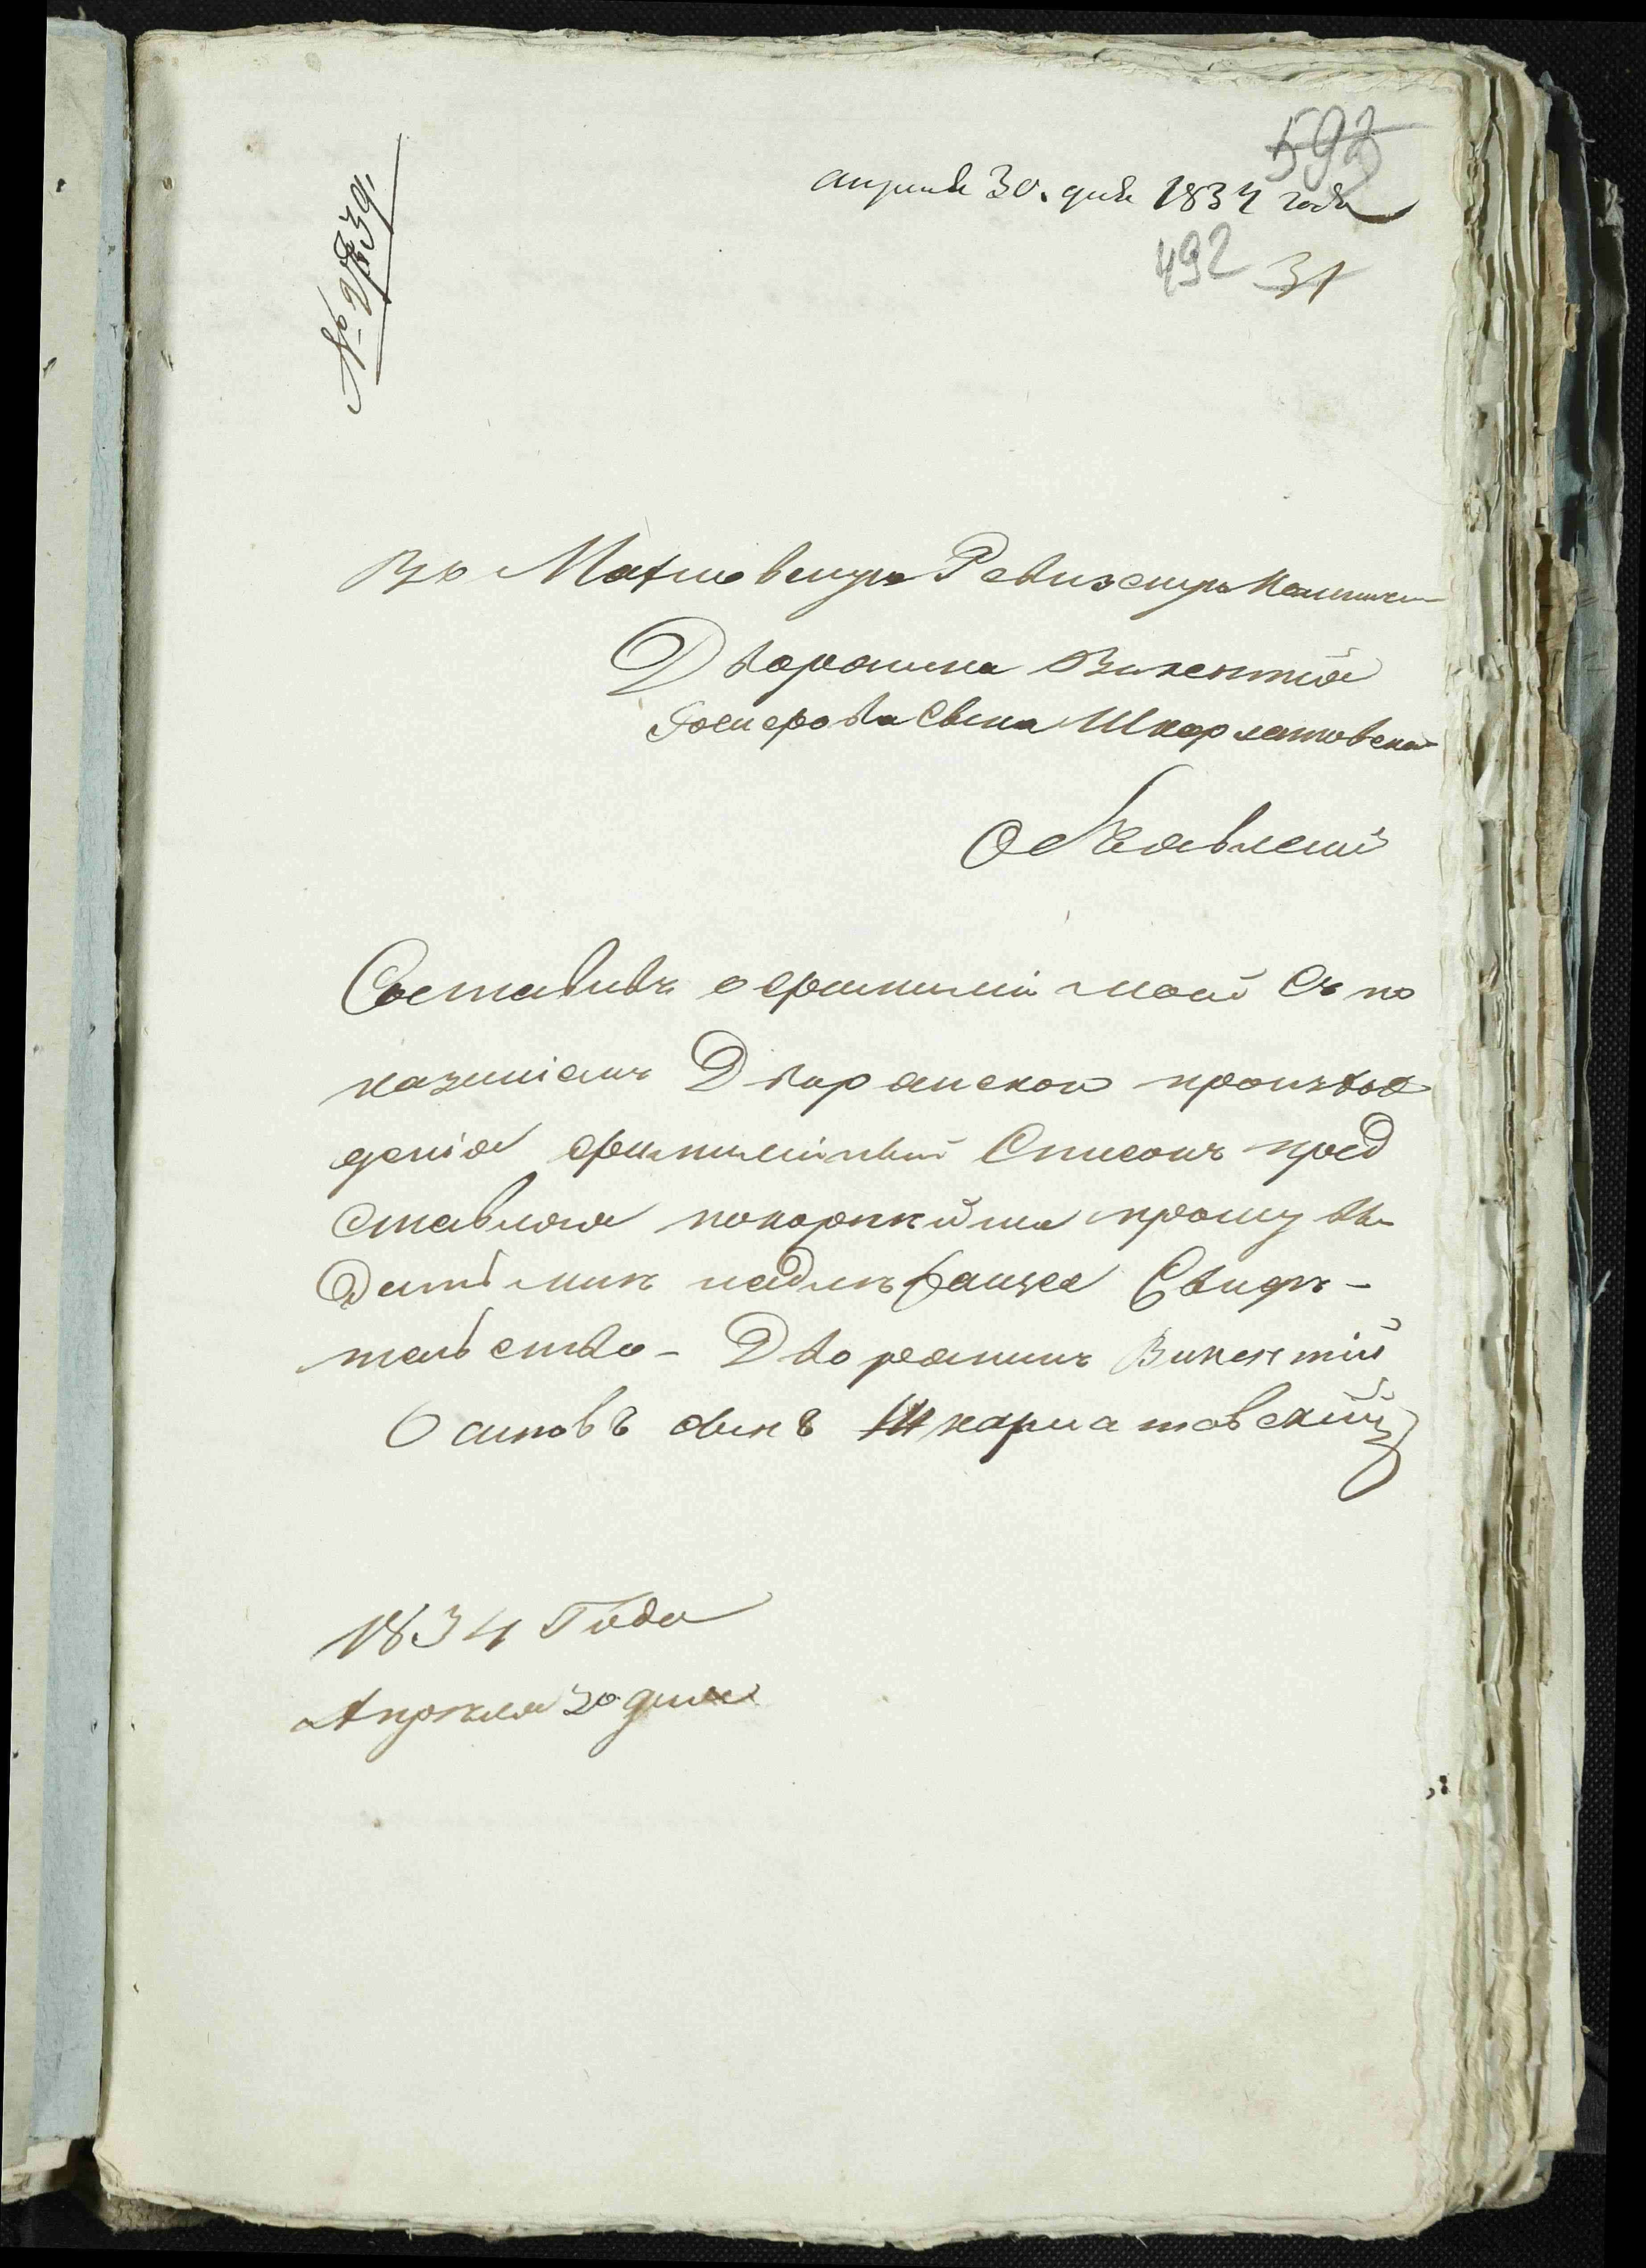 592
апреля 30. дня 1834 года
492 31
№ 39.
Въ Махновскую Ревизскую Коммисию
Дворянина Викентія
сына Шкарлатовскаго
Объявленіе
Составивъ о фамиліи моей съ по
казаніемъ Дворянскаго произхож
денія фамилійный Списокъ пред
ставляя покорнѣйше прошу вы
дать мнѣ надлежащее Свидѣ-
тельство - Дворянинъ Викентій
сынъ Шкарлатовскій
1834 Года
Апрѣля 30 дня